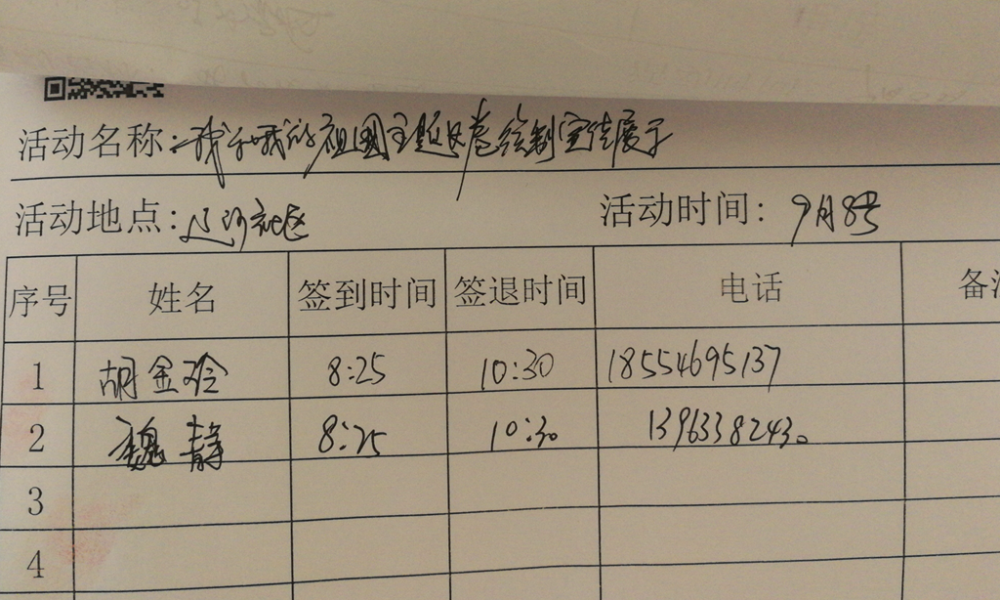 活动名称:我和我的祖国主题长卷绘制宣传展示
活动地点:辽河社区 活动时间:9月8号
序号 姓名 签到时间 签退时间 电话 备
1 胡金玲 8:25 10:30 18554695137
2 魏静 8:25 10:30 13963382430
3
4